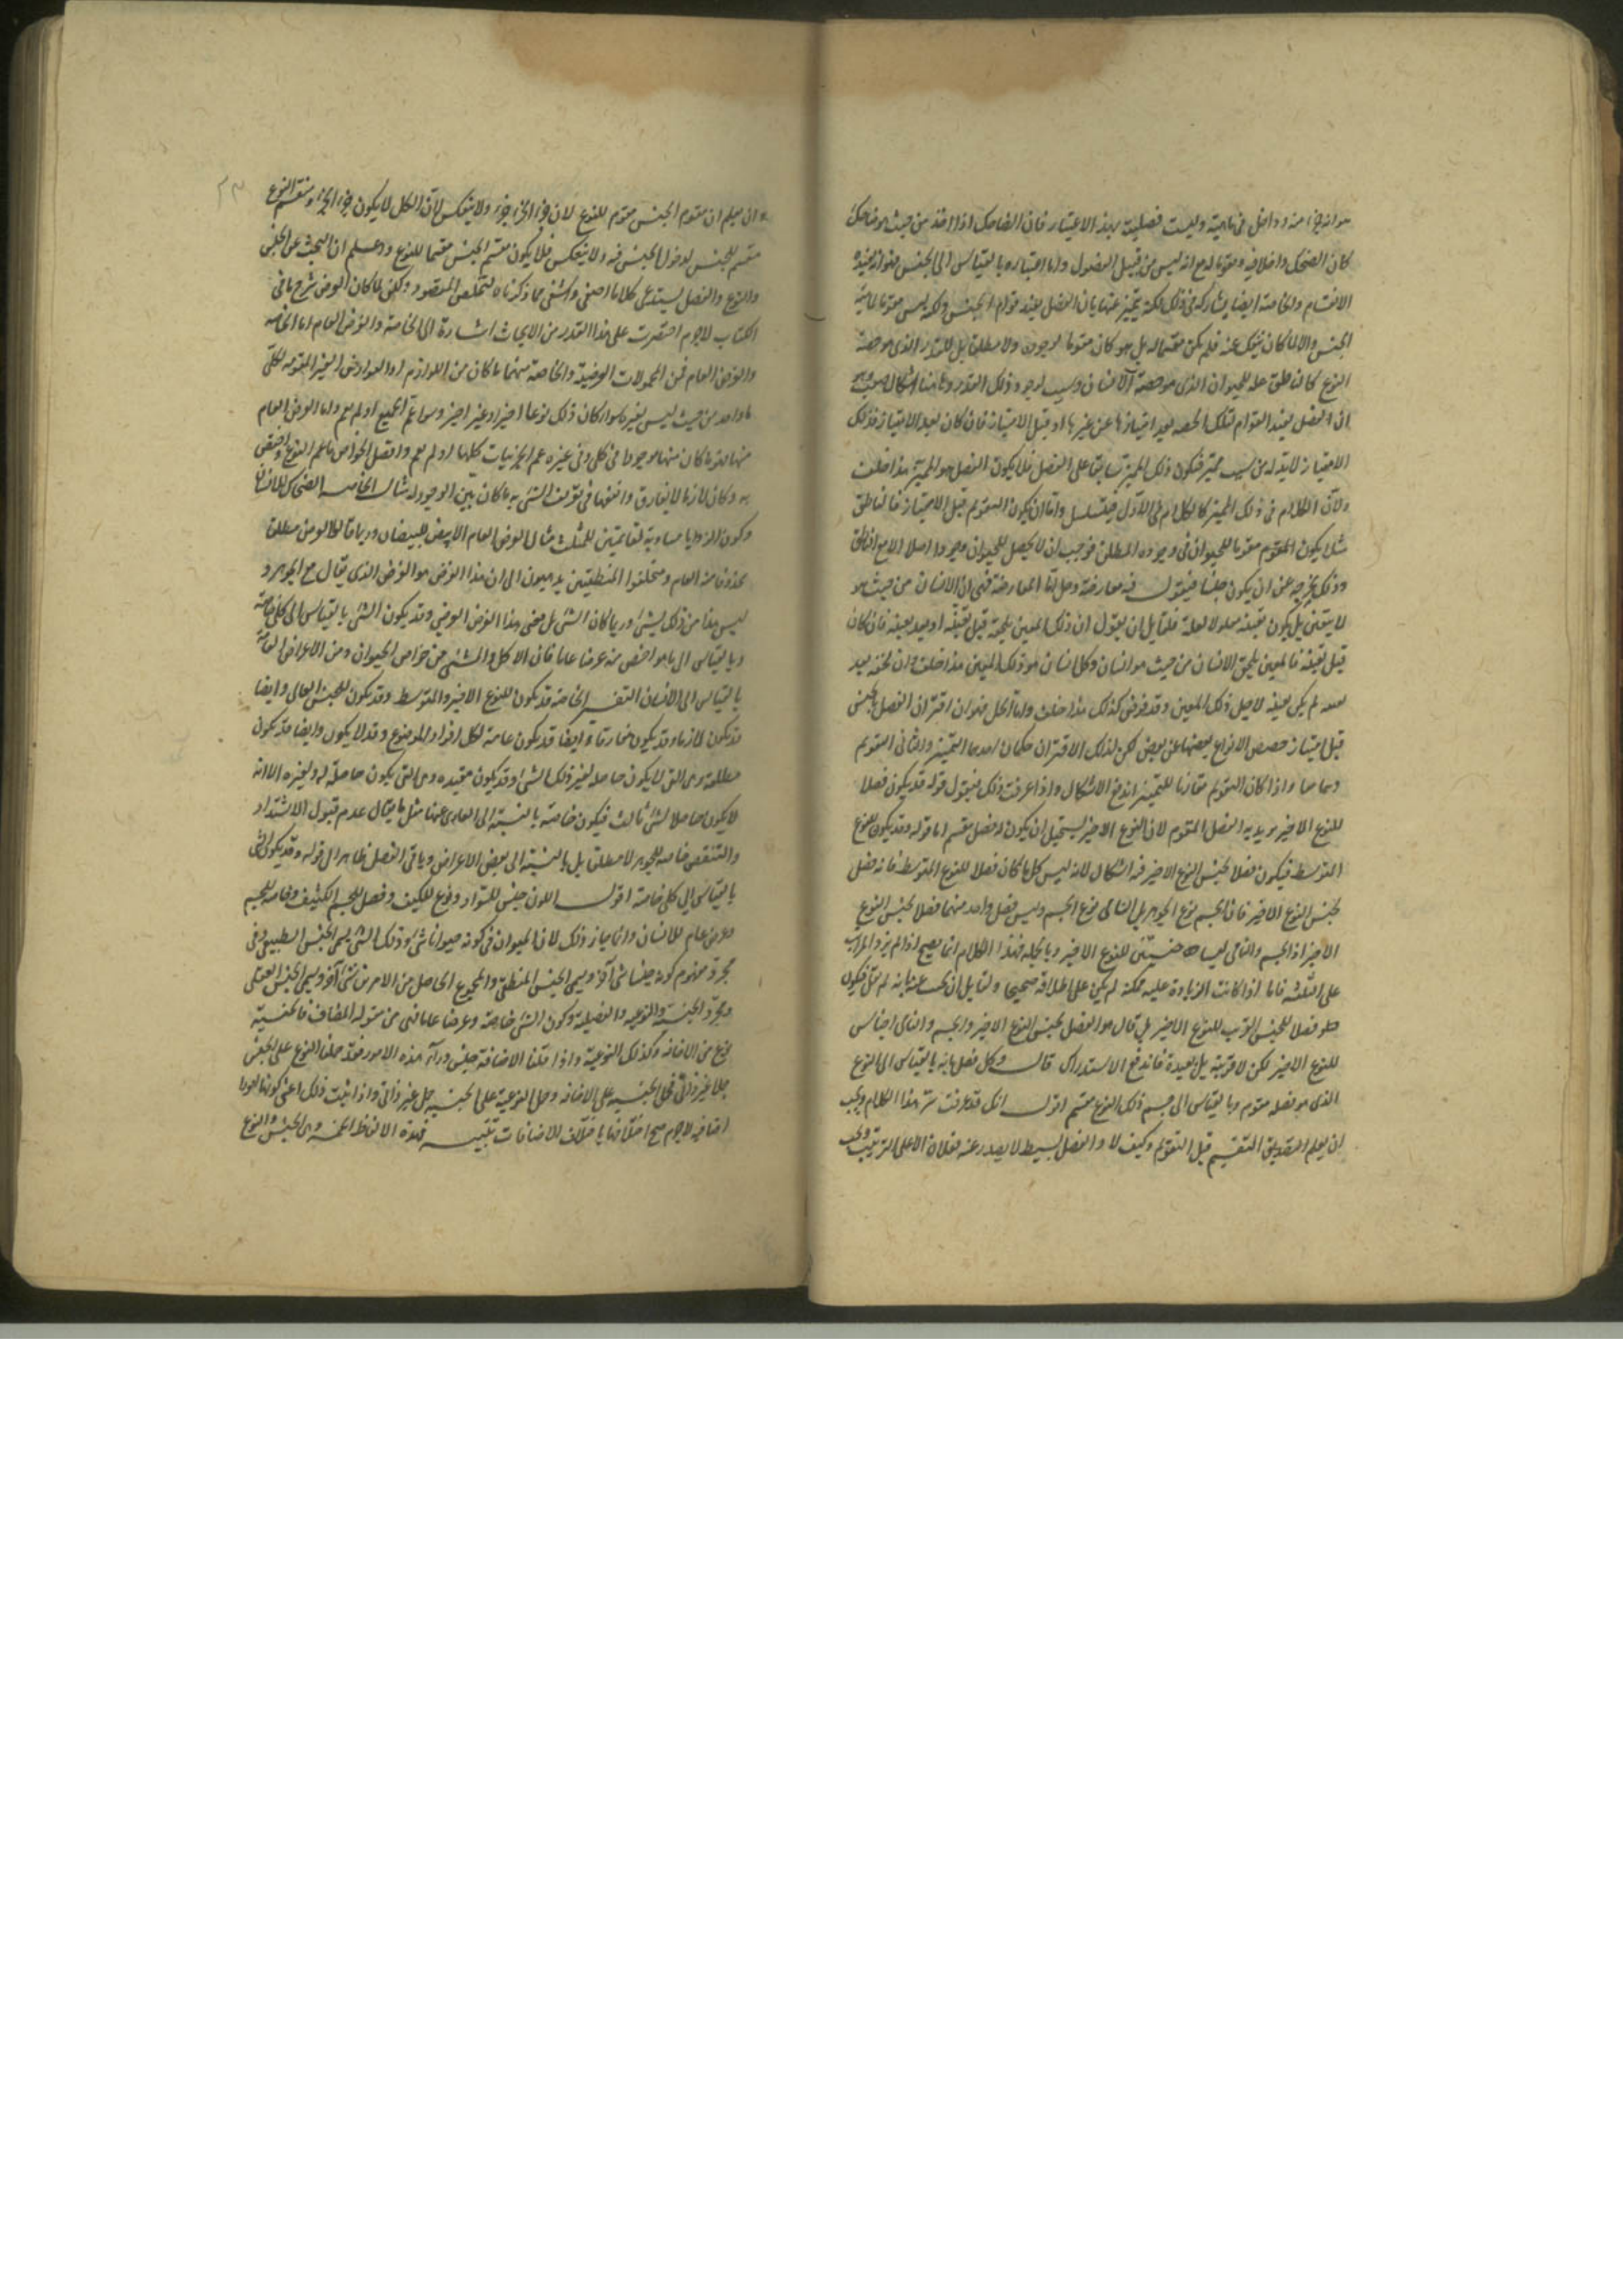 هو انه جزء منه وداخل فى ماهيته وليست فصليته بهذا الاعتبار فان الضاحك اذا اخذ من حيث هو ضاحك
كان الضحك داخلا فيه ومقوما له مع انه ليس من قبيل الفصول واما اعتباره بالقياس الى الجنس فهو انه يفيده
الانقسام والخاصة ايضا يشاركه فى ذلك لكنه يتميز عنها بان الفصل يفيد قوام الجنس ولكنه ليس مقوما لماهية
الجنس والا لما كان ينفك عنه فلم يكن مقسما له بل هو كان مقوما لوجوده ولا مطلقا بل للقدر الذى هو حصة
النوع كالناطق علة للحيوان الذى هو حصة الانسان وسبب لوجود ذلك القدر وهاهنا اشكال صعب وهو
ان الفصل يفيد القوام لتلك الحصة بعد امتيازها عن غيرها او قبل الامتياز فان كان بعد الامتياز فذلك
الامتياز لابد له من سبب مميز فيكون ذلك المميز سابقا على الفصل فلا يكون الفصل هو المميز هذا خلف
ولان الكلام فى ذلك المميز كالكلام فى الاول فيتسلسل واما ان يكون التقويم قبل الامتياز فالناطق
مثلا يكون المقوم مقوما للحيوان فى وجوده المطلق فوجب ان لا يحصل للحيوان وجود اصلا الا مع الناطق
وذلك يخرجه عن ان يكون جنسا فنقول فيه معارضة وحل اما المعارضة فهى ان الانسان من حيث هو
لا يقتضى بل يكون تعينه معلولا لعلة فلقائل ان يقول ان ذلك المعين يلحقه قبل تعينه او بعد تعينه فان كان
قبل تعينه فالمعين يلحق الانسان من حيث هو انسان وكل انسان هو ذلك المعين هذا خلف وان لحقه بعد
تعينه لم يكن تعينه لاجل ذلك المعين وقد فرض كذلك هذا خلف واما الحل فهو ان اقتران الفصل بالجنس
قبل امتياز حصص الانواع بعضها عن بعض لكن لذلك الاقتران حكمان احدهما التمييز والثانى التقويم
وهما معا واذا كان التقويم مقارنا للتمييز اندفع الاشكال واذا عرفت ذلك فنقول قوله قد يكون فصلا
للنوع الاخير يريد به الفصل المقوم لان النوع الاخير يستحيل ان يكون له فصل مقسم اما قوله وقد يكون للنوع
المتوسط فيكون فصلا لجنس النوع الاخير فيه اشكال لانه ليس كل ما كان فصلا للنوع المتوسط فانه فصل
لجنس النوع الاخير فان الجسم نوع الجوهر بل النامى نوع الجسم وليس فصل واحد منهما فصلا لجنس النوع
الاخير اذ الجسم والنامى ليسا جنسين للنوع الاخير وبالجملة فهذا الكلام انما يصح اذا لم يزد المراتب
على الثلثة فاما اذا كانت الزيادة عليه ممكنة لم يكن على اطلاقه صحيحا ولقائل ان يجيب عنه بانه لم يقل فيكون
فصلا للجنس القريب للنوع الاخير بل قال هو الفصل لجنس النوع الاخير والجسم والنامى اجناس
للنوع الاخير لكن لا قريبة بل بعيدة فاندفع الاستدراك قال وكل فصل فانه بالقياس الى النوع
الذى هو فصله مقوم وبالقياس الى جنس ذلك النوع مقسم اقول انك قد عرفت شرح هذا الكلام ويجب
ان يعلم التصديق التقسيم قبل التقويم وكيف لا والفصل البسيط لا يصدر عنه فعلان الا على الترتيب ويجب
ان يعلم ان مقوم الجنس مقوم للنوع لان جزء الجزء جزء ولا ينعكس لان الكل لا يكون جزء الجزء ومقسم النوع
مقسم للجنس لدخول الجنس فيه ولا ينعكس فلا يكون مقسم الجنس مقسما للنوع واعلم ان البحث عن الجنس
والنوع والفصل يستدعى كلاما اصفى واشفى مما ذكرناه لتخلص المقصود ولكن لما كان الغرض شرح ما فى
الكتاب لاجرم اقتصرت على هذا القدر من الابحاث اشارة الى الخاصة والعرض العام اما الخاصة
والعرض العام فمن المحمولات العرضية والخاصة منهما ما كان من اللوازم او العوارض الغير المقومة لكلى
ما واحد من حيث ليس لغيره سواء كان ذلك نوعا اخيرا او غير اخير وسواء عم الجميع او لم يعم واما العرض العام
منهما فهو ما كان منها موجودا فى كلى وفى غيره عم الجزئيات كلها او لم يعم وافضل الخواص ما عم النوع واختص
به وكان لازما لا يفارق وانفعها فى تعريف الشئ به ما كان بين الوجود له مثال الخاصة الضحاك للانسان
وكون الزوايا مساوية لقائمتين للمثلث مثال العرض العام الابيض للبيضان وربما قالوا العرض مطلقا
محذوفا منه العام ومتخلفوا المنطقيين يذهبون الى ان هذا العرض هو العرض الذى يقال مع الجوهر و
ليس هذا من ذلك بشئ وربما كان الشئ بل معنى هذا العرض العرضى وقد يكون الشئ بالقياس الى كلى خاصة
وبالقياس الى ما هو اخص منه عرضا عاما فان الاكل والمشى من خواص الحيوان ومن الاعراض العامة
بالقياس الى الانسان التفسير الخاصة قد يكون للنوع الاخير والمتوسط وقد يكون للجنس العالى وايضا
قد يكون لازما وقد يكون مفارقا وايضا قد يكون عامة لكل افراد الموضوع وقد لا يكون وايضا قد يكون
مطلقة وهى التى لا يكون حاصلة لغير ذلك الشئ وقد يكون مقيدة وهى التى يكون حاصلة له ولغيره الا انه
لا يكون حاصلا لشئ ثالث فيكون خاصة بالنسبة الى العارى عنها مثل ما يقال عدم قبول الاشتداد
والتنقص خاصة للجوهر لا مطلقا بل بالنسبة الى بعض الاعراض وباقى الفصل ظاهر الى قوله وقد يكون الشئ
بالقياس الى كلى خاصة اقول اللون جنس للسواد ونوع للكيف وفصل للجسم الكثيف وخاصة للجسم
وعرض عام للانسان وانما جاز ذلك لان الحيوان فى كونه حيوانا شئ وذلك الشئ يسمى الجنس الطبيعى وفى
مجرد مفهوم كونه جنسا شئ آخر ويسمى الجنس المنطقى والمجموع الحاصل من الامرين شئ آخر ويسمى الجنس العقلى
ومجرد الجنسية والنوعية والفصلية وكون الشئ خاصة وعرضا عاما فهى من مقولة المضاف فالجنسية
نوع من الاضافة وكذلك النوعية واذا قلنا الاضافة جنس وراء هذه الامور فقد حملنا النوع على الجنس
حملا غير ذاتى فحمل الجنسية على الاضافة وحمل النوعية على الجنسية حمل غير ذاتى واذا ثبت ذلك اعنى كونها امورا
اضافية لاجرم صح اختلافها باختلاف الاضافات تنبيه فهذه الالفاظ الخمسة وهى الجنس والنوع